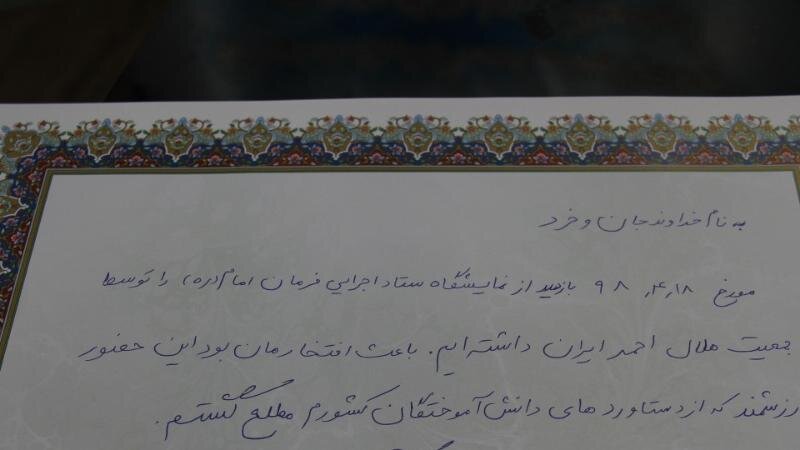 به نام خداوند جان و خرد
مورخ ۹۸,۴,۱۸ بازدید از نمایشگاه ستاد اجرایی فرمان امام(ره) را توسط
جمعیت هلال احمر ایران داشته ایم. باعث افتخارمان بود این حضور
ارزشمند که از دستاوردهای دانش آموختگان کشورم مطلع گشتم.